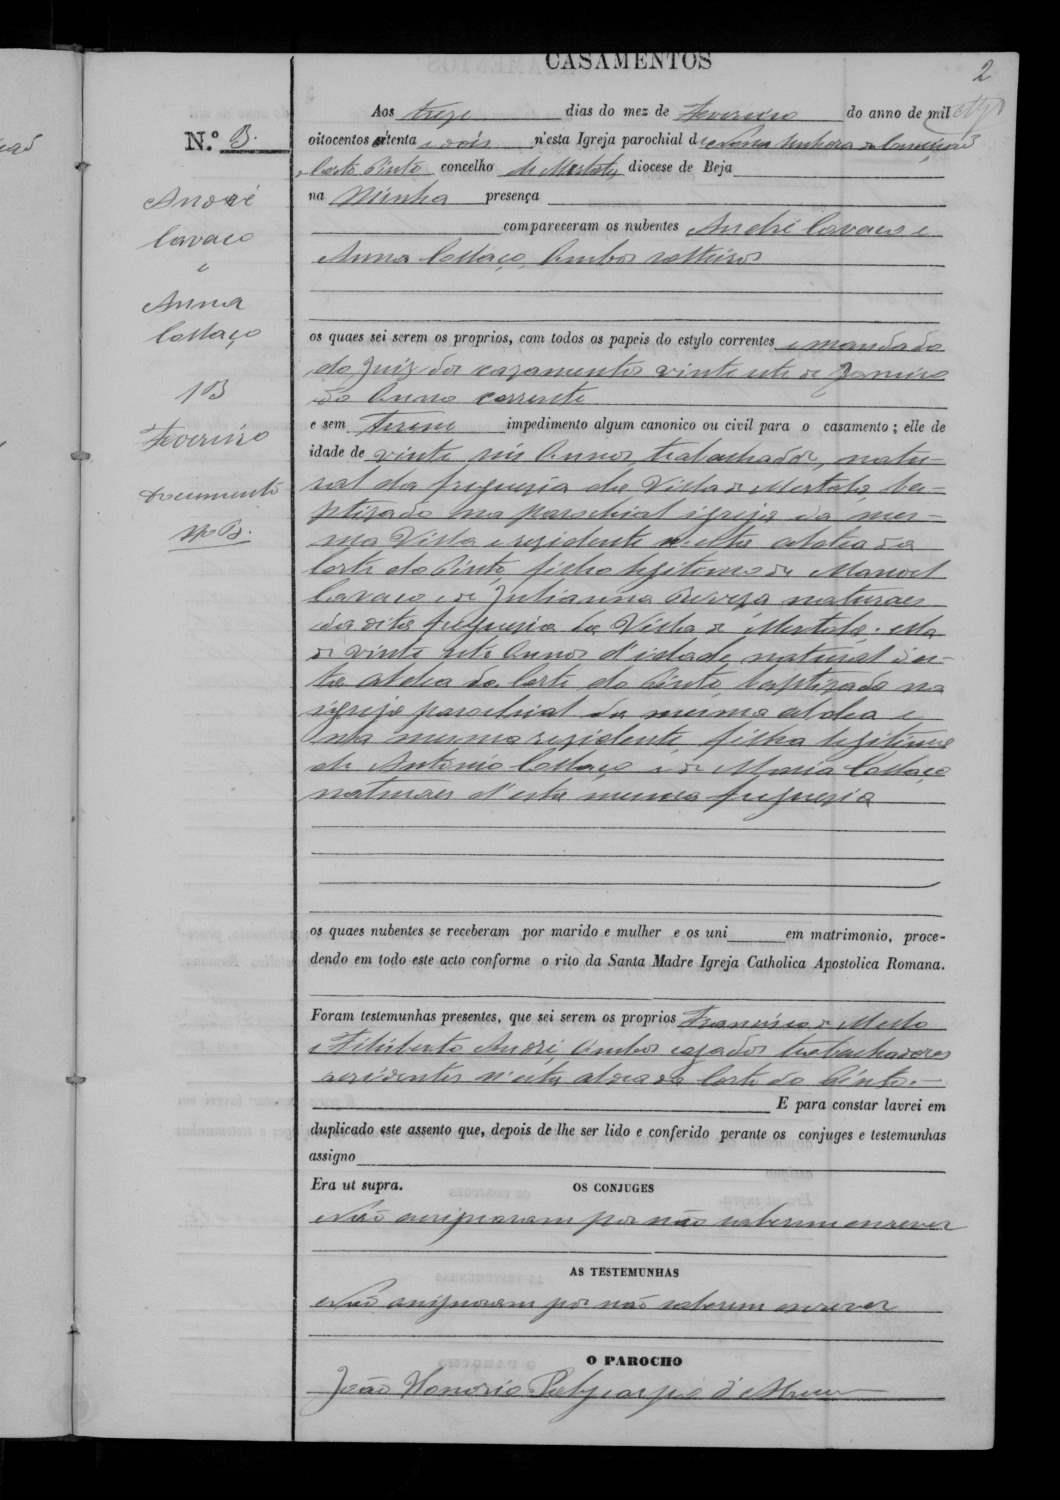 CASAMENTOS
2
N.º 3.
André
Cavaco
e
Anna
Collaço
13
Fevereiro
Documento
Nº 3.
Aos treze dias do mez de Fevereiro do anno de mil
oitocentos oitenta e dois n'esta Igreja parochial de Nossa Senhora da Conceição
Corte Pinto concelho de Mertola, diocese de Beja
na Minha presença
compareceram os nubentes André Cavaco e
Anna Collaço, Ambos solteiros
os quaes sei serem os proprios, com todos os papeis do estylo correntes e mandado
do Juiz dos cazamentos vinte sete de Janeiro
do Anno corrente
e sem terem impedimento algum canonico ou civil para o casamento; elle de
idade de vinte seis Annos, trabalhador, natu-
ral da freguezia da Villa de Mertola, ba-
ptizado na parochial igreja da mes-
ma Villa e rezidente n'esta aldea da
Corte do Pinto, filho legitimo de Manoel
Cavaco e de Julianna naturaes
da dita freguezia da Villa de Mertola. ella
de vinte sete Annos d'idade, natural des-
ta aldea da Corte do Pinto, baptizada na
igreja parochial da mesma aldea e
nta mesma rezidente, filha legitima
de Antonio Collaço e de Maria Collaço
naturaes d'esta mesma freguezia
os quaes nubentes se receberam por marido e mulher e os uni em matrimonio, proce-
dendo em todo este acto conforme o rito da Santa Madre Igreja Catholica Apostolica Romana.
Foram testemunhas presentes, que sei serem os proprios Francisco de Mello
e Filisberto André, Ambos cazados trabalhadores
e rezidentes n'esta aldea da Corte do Pinto.—
E para constar lavrei em
duplicado este assento que, depois de lhe ser lido e conferido perante os conjuges e testemunhas
assigno
Era ut supra.
OS CONJUGES
Não assignaram por não saberem escrever
AS TESTEMUNHAS
Não assignaram por não saberem escrever
O PAROCHO
João Honorio Polycarpo d'Abreu